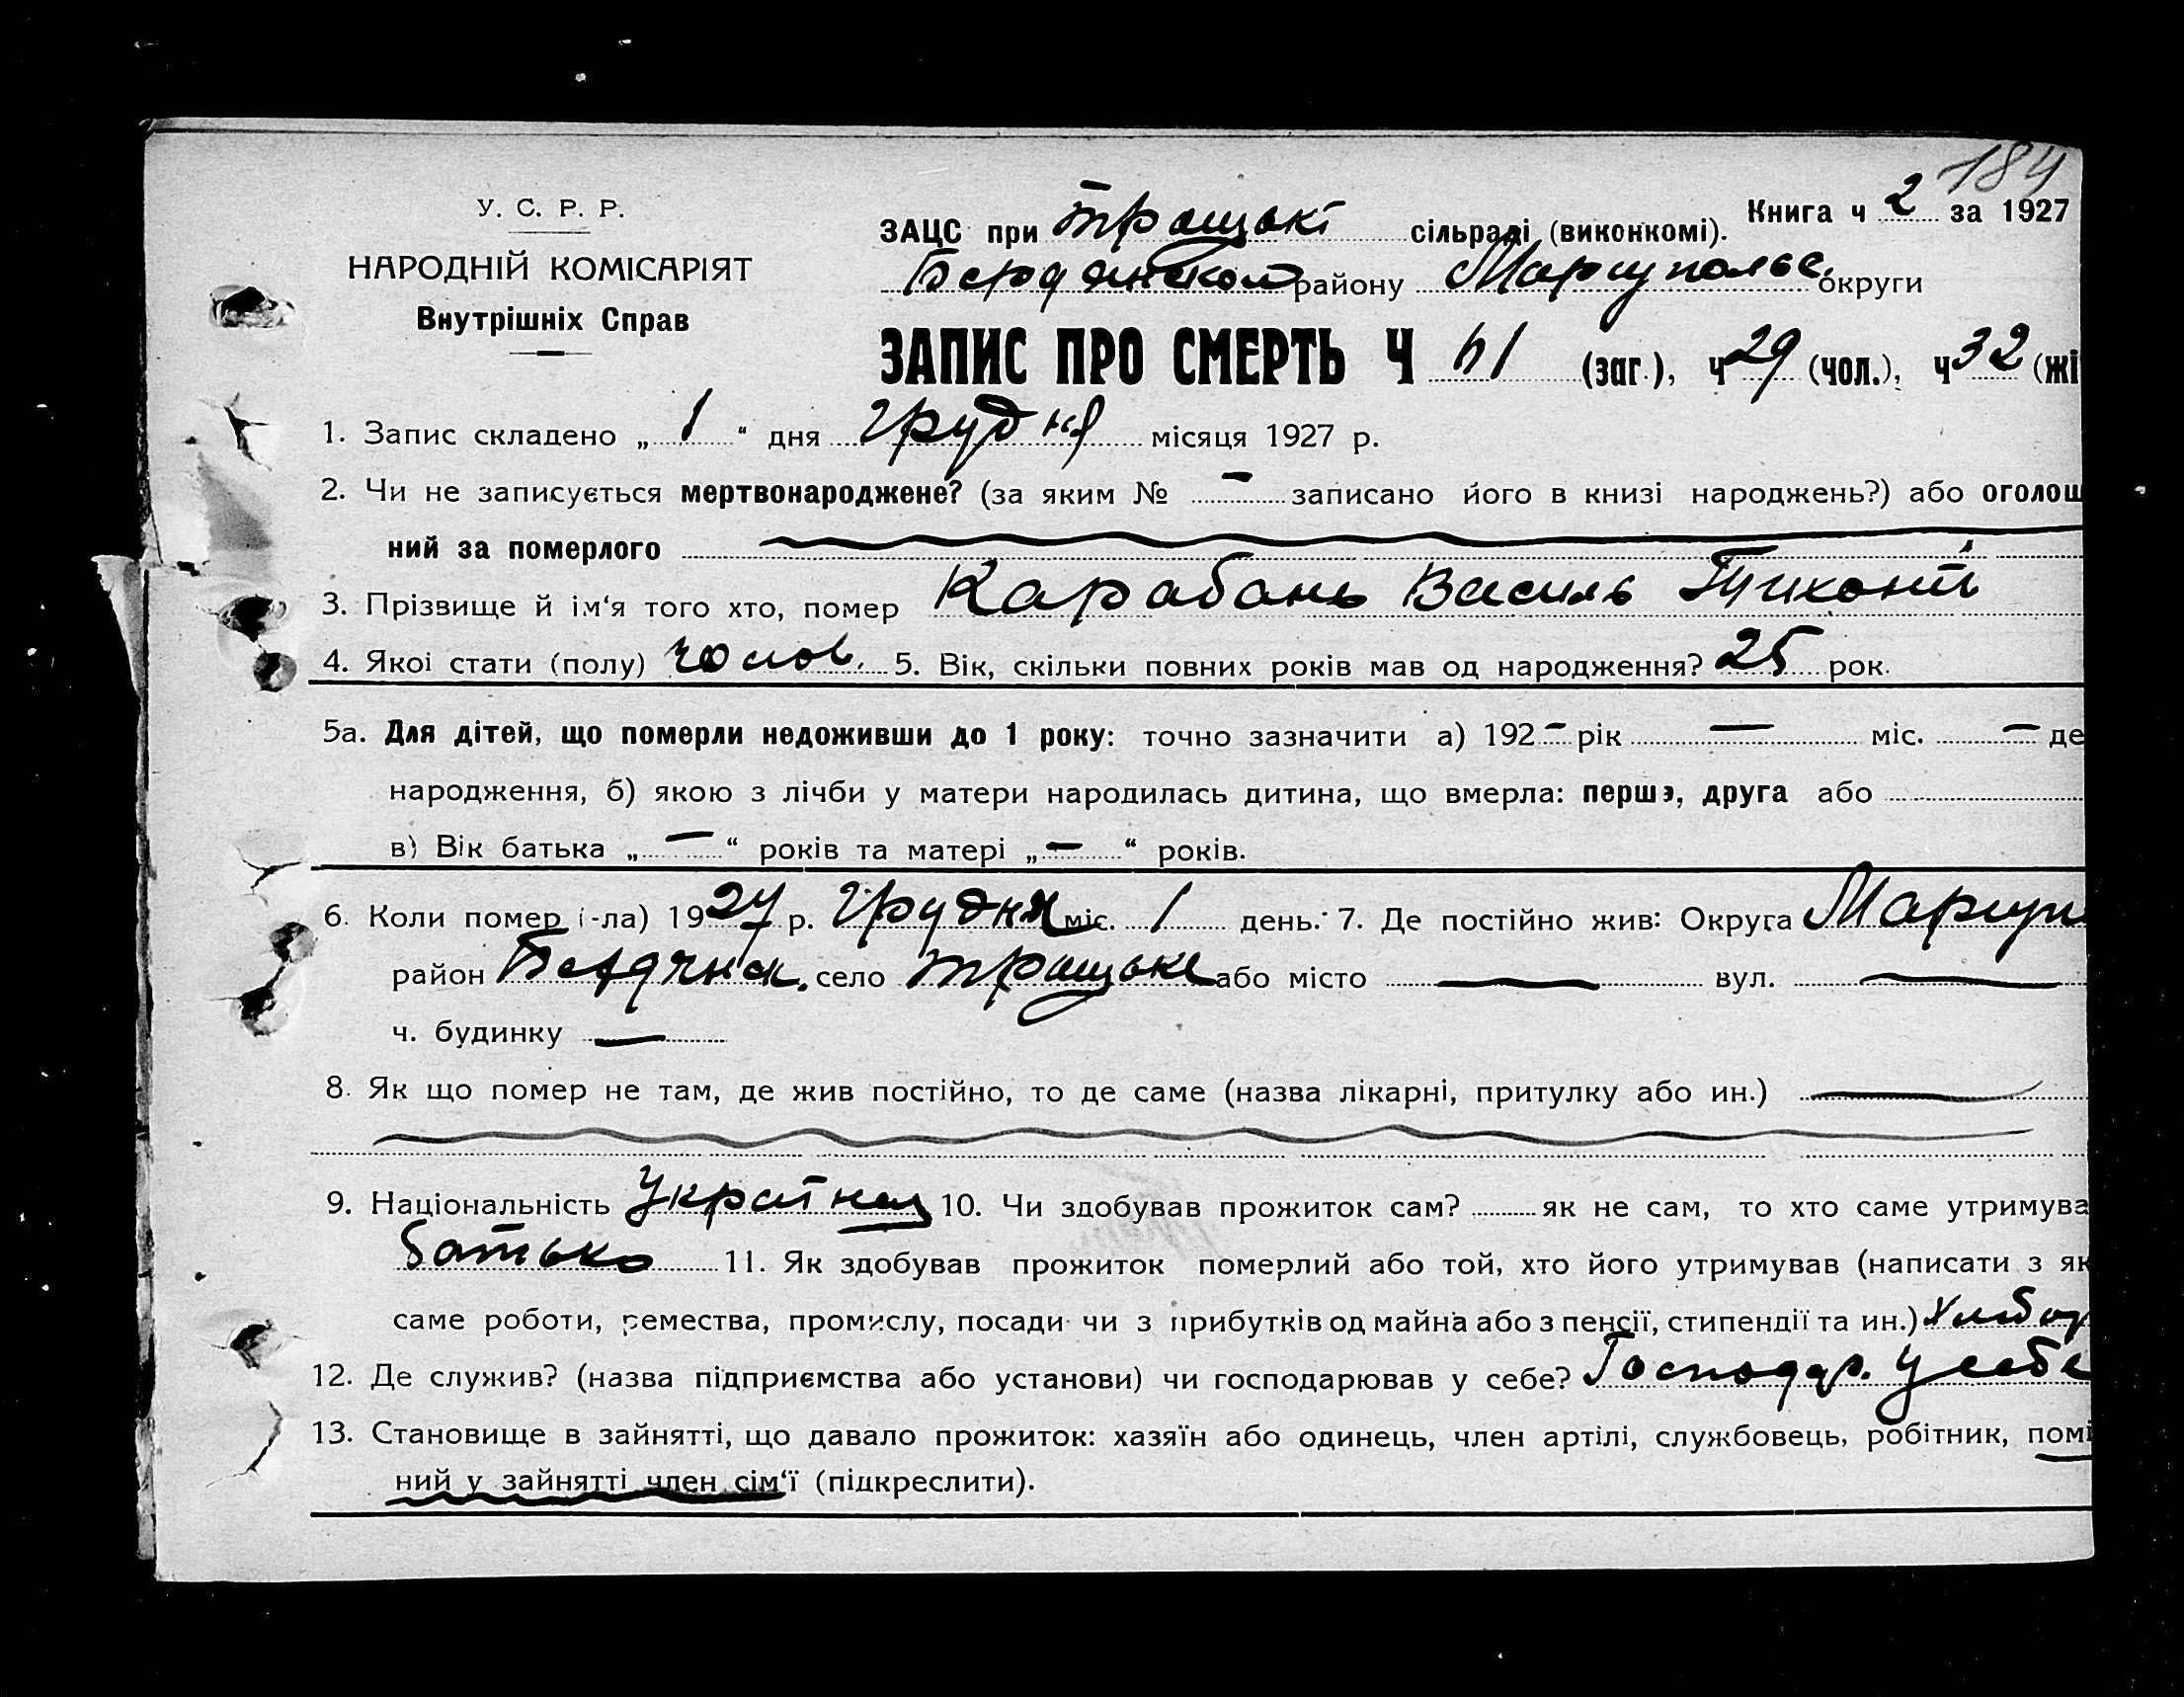 184
У. С. Р. Р.
НАРОДНІЙ КОМІСАРІЯТ
Внутрішніх Справ
Книга ч 2 за 1927
ЗАЦС при сільраді (виконкомі).
Бердянском району Мариупольс. округи
ЗАПИС ПРО СМЕРТЬ Ч 61 (заг.), ч 29 (чол.), ч 32 (жі
1. Запис складено „ 1 “ дня Грудня місяця 1927 р.
2. Чи не записується мертвонароджене? (за яким № — записано його в книзі народжень?) або оголош
ний за померлого
3. Прізвище й ім‘я того хто, помер Карабань Василь
4. Якої стати (полу) чолов. 5. Вік, скільки повних років мав од народження? 25 рок.
5а. Для дітей, що померли недоживши до 1 року: точно зазначити а) 192 — рік — міс. — де
народження, б) якою з лічби у матери народилась дитина, що вмерла: перша, друга або
в) Вік батька „ — “ років та матері „ — “ років.
6. Коли помер (-ла) 1927 р. Грудня міс. 1 день. 7. Де постійно жив: Округа Мариуп
район Бердянск. село або місто — вул. —
ч. будинку —
8. Як що помер не там, де жив постійно, то де саме (назва лікарні, притулку або ин.) —
9. Національність 10. Чи здобував прожиток сам? як не сам, то хто саме утримува
батько 11. Як здобував прожиток померлий або той, хто його утримував (написати з як
саме роботи, ремества, промислу, посади чи з прибутків од майна або з пенсії, стипендії та ин.)
12. Де служив? (назва підприємства або установи) чи господарював у себе? Господар. у себе
13. Становище в зайнятті, що давало прожиток: хазяїн або одинець, член артілі, службовець, робітник, помі
ний у зайнятті член сім‘ї (підкреслити).